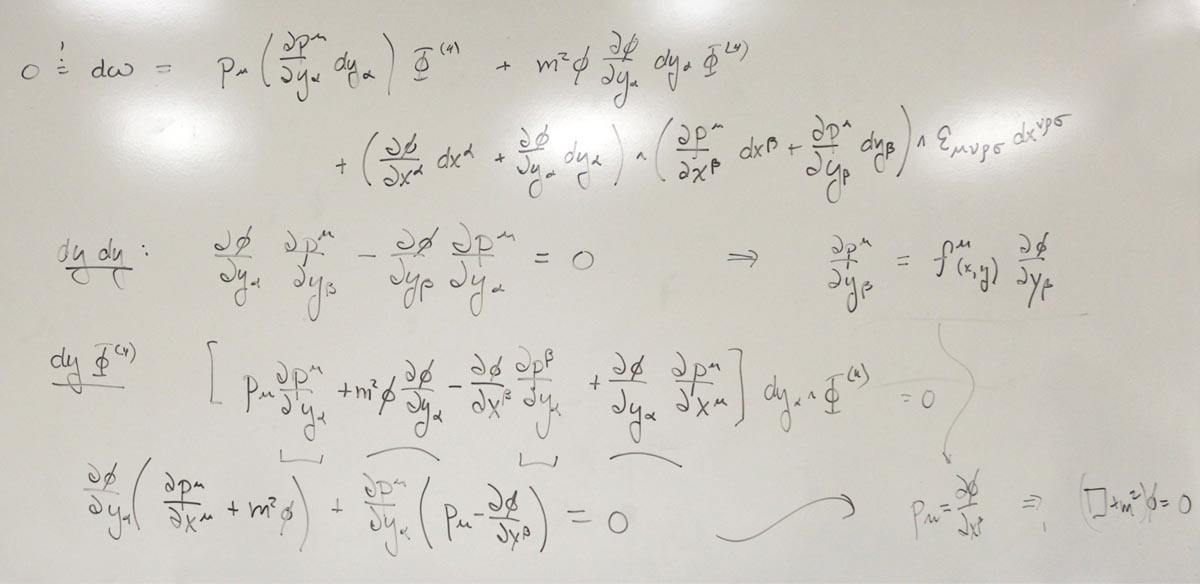 0 ≐ dω = pμ (∂p^μ/∂yα dyα) Φ^(4) + m²ϕ ∂ϕ/∂yα dyα Φ^(4)
+ (∂ϕ/∂x^α dx^α + ∂ϕ/∂yα dyα) ∧ (∂p^μ/∂x^β dx^β + ∂p^μ/∂yβ dyβ) ∧ εμνρσ dx^νρσ
dy dy : ∂ϕ/∂yα ∂p^μ/∂yβ − ∂ϕ/∂yβ ∂p^μ/∂yα = 0 ⇒ ∂p^μ/∂yβ = f^μ(x,y) ∂ϕ/∂yβ
dy Φ^(4) [pμ ∂p^μ/∂yα + m²ϕ ∂ϕ/∂yα − ∂ϕ/∂x^β ∂p^β/∂yα + ∂ϕ/∂yα ∂p^μ/∂x^μ] dyα ∧ Φ^(4) = 0
∂ϕ/∂yα (∂p^μ/∂x^μ + m²ϕ) + ∂p^μ/∂yα (pμ − ∂ϕ/∂x^β) = 0 → pμ = ∂ϕ/∂x^β ⇒ (□ + m²)ϕ = 0